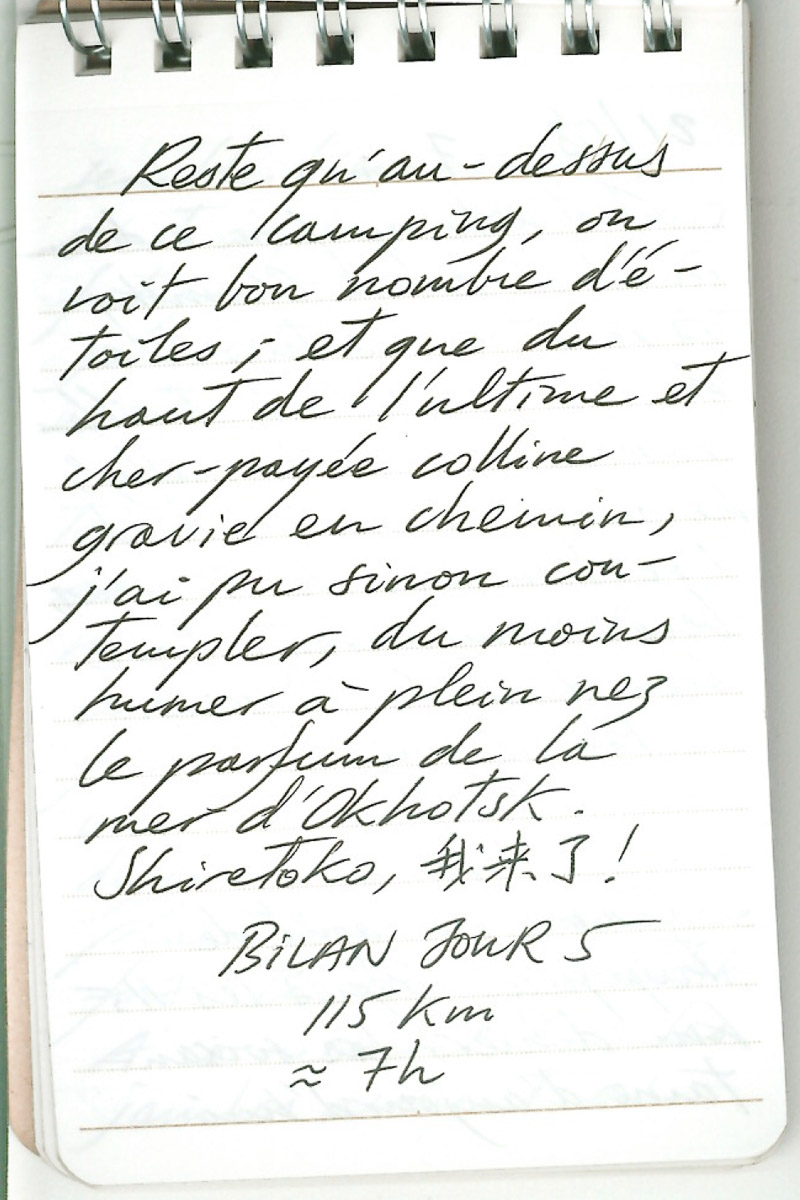 Reste qu'au-dessus
de ce camping, on
voit bon nombre d'é-
toiles ; et que du
haut de l'ultime et
cher-payée colline
gravie en chemin,
j'ai pu sinon con-
templer, du moins
humer à plein nez
le parfum de la
mer d'Okhotsk.
Shiretoko, 我来了!
BILAN JOUR 5
115 km
≈ 7h